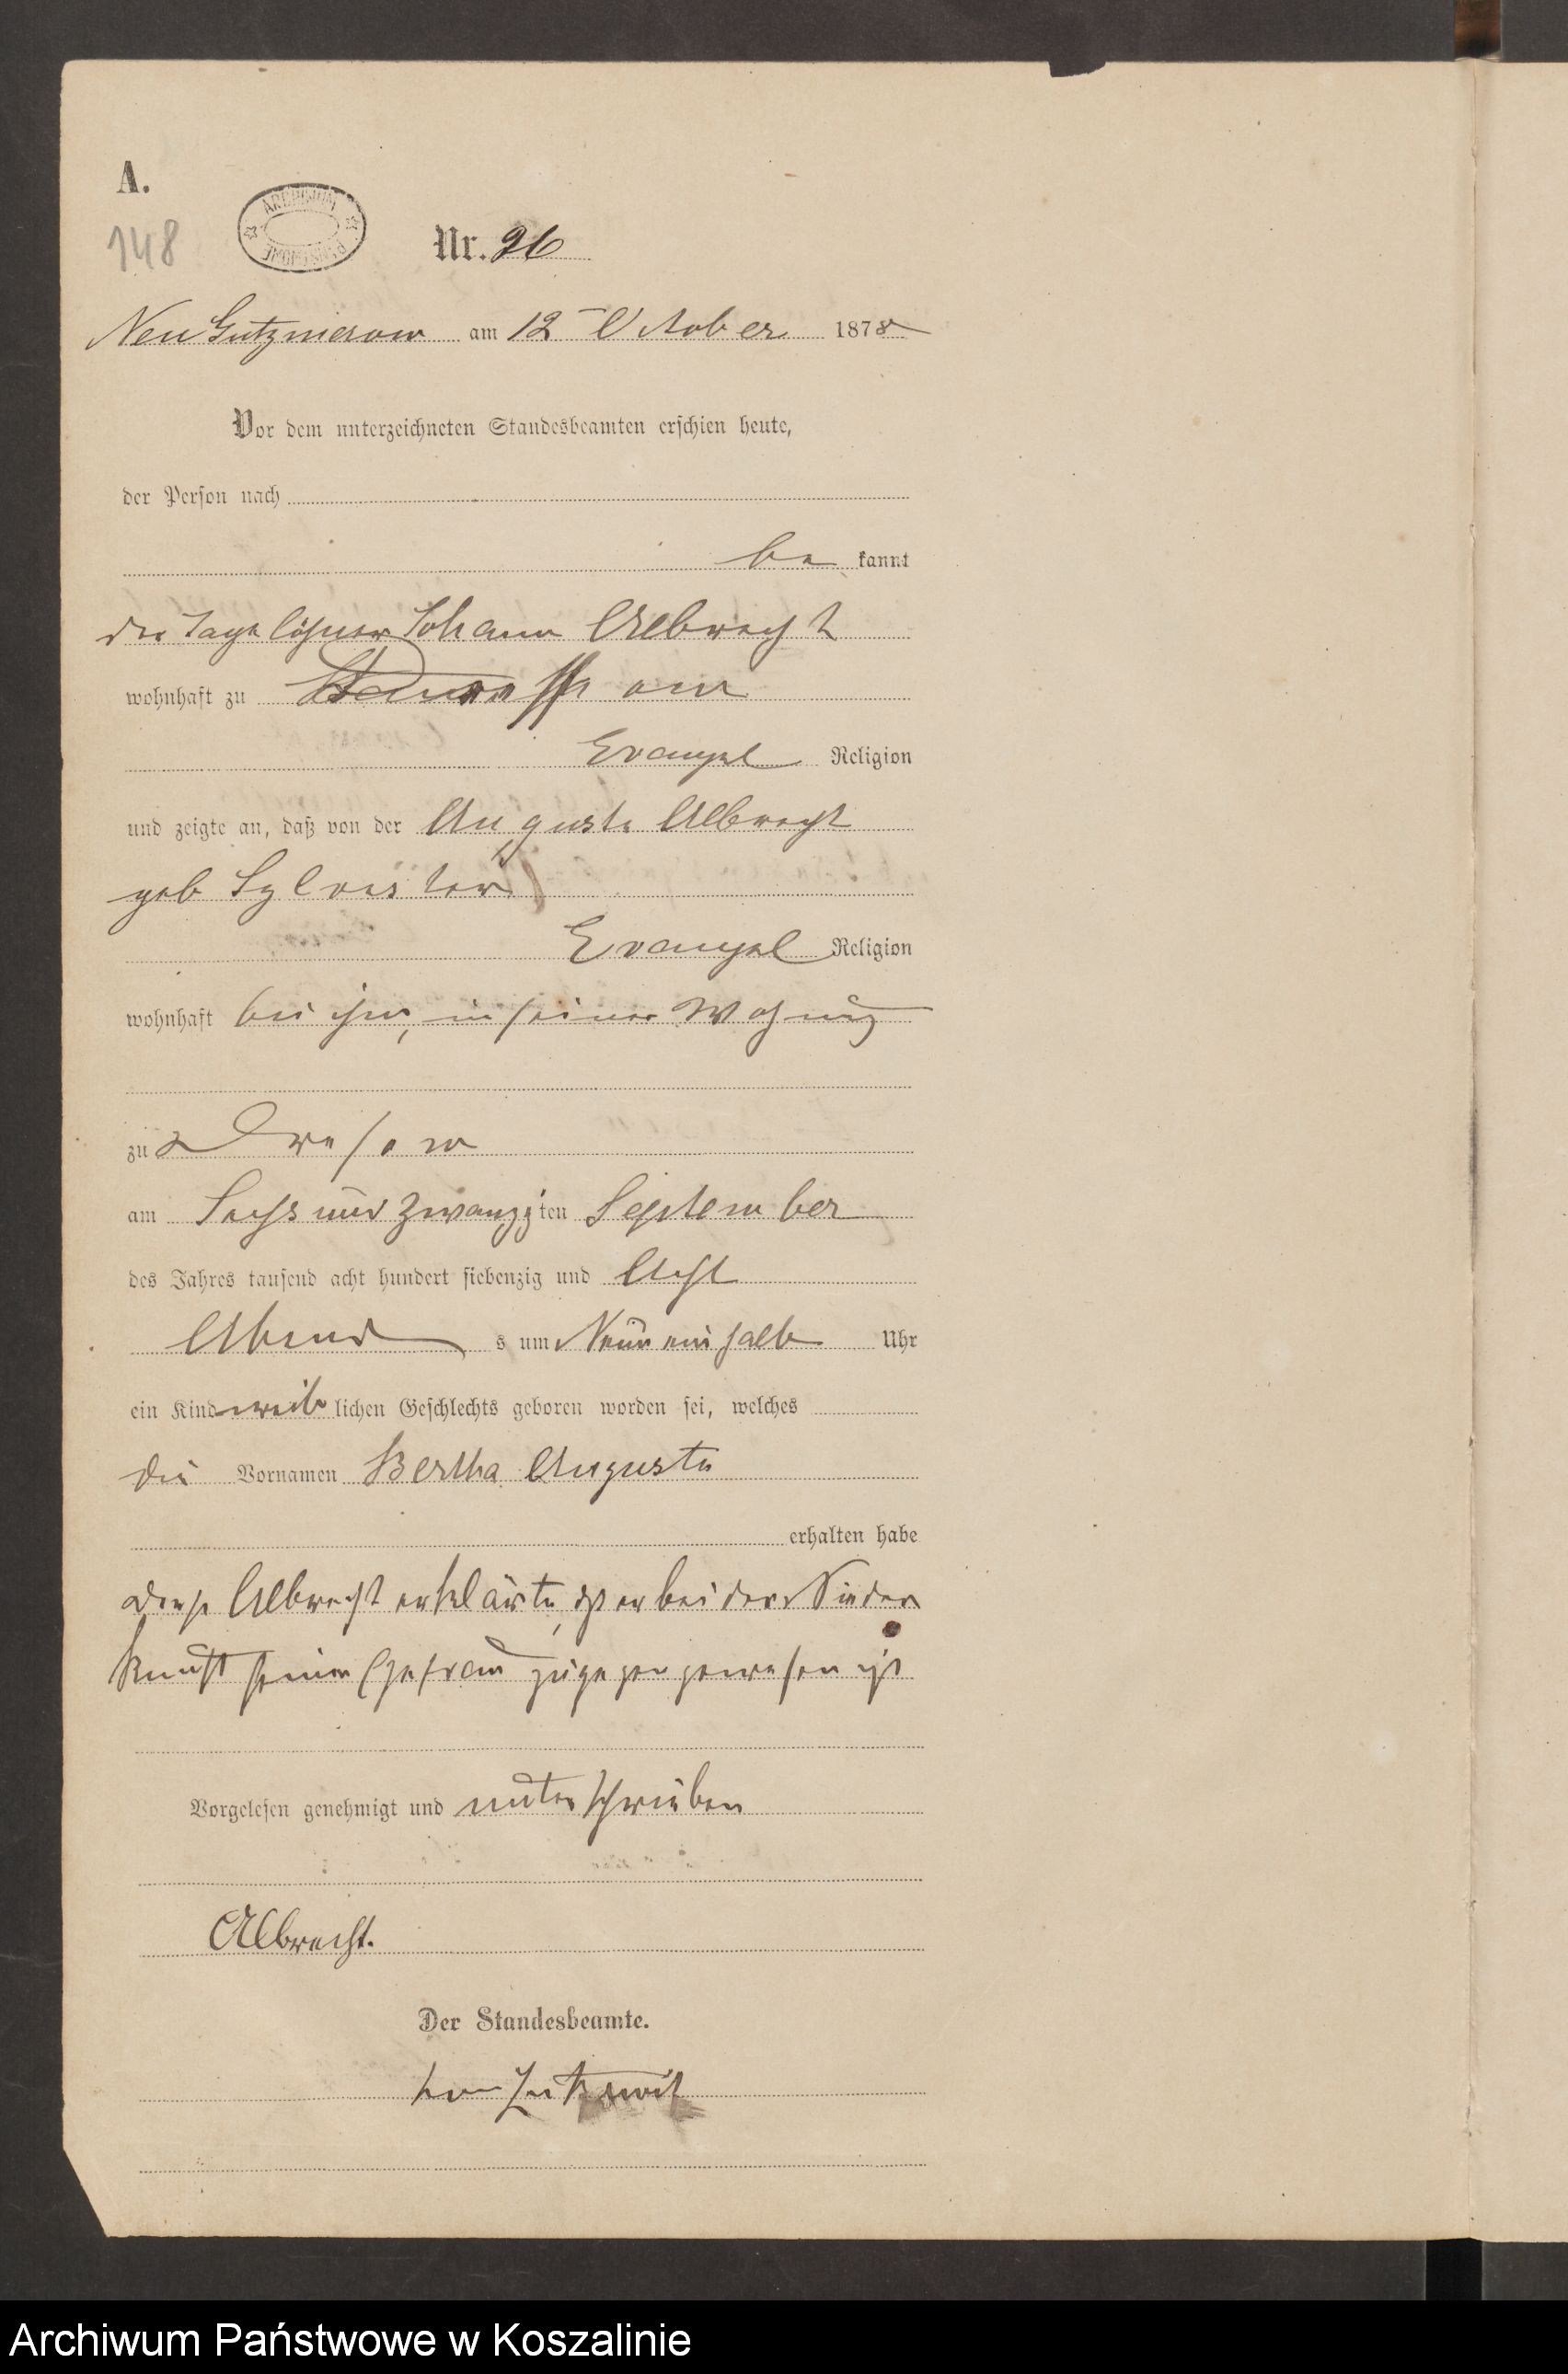 A.
148
ARCHIWUM PAŃSTWOWE
Nr. 96
Neu Gutzmerow am 12 October 1878
Vor dem unterzeichneten Standesbeamten erschien heute,
der Person nach
be kannt
der Tagelöhner Johann Albrecht
wohnhaft zu
Evangel Religion
und zeigte an, daß von der Auguste Albrecht
geb Sylvester
Evangel Religion
wohnhaft bei ihm, in seiner Wohnung
zu Dresow
am Sechs und zwanzigten September
des Jahres tausend acht hundert siebenzig und Acht
Abend s um Neun ein halb Uhr
ein Kind weib lichen Geschlechts geboren worden sei, welches
die Vornamen Bertha Auguste
erhalten habe
Albrecht erklärte, daß er bei der Nieder
kunft seiner Ehefrau zugegen gewesen ist
Vorgelesen genehmigt und unterschrieben
Albrecht.
Der Standesbeamte.
von Zitzewitz
Archiwum Państwowe w Koszalinie